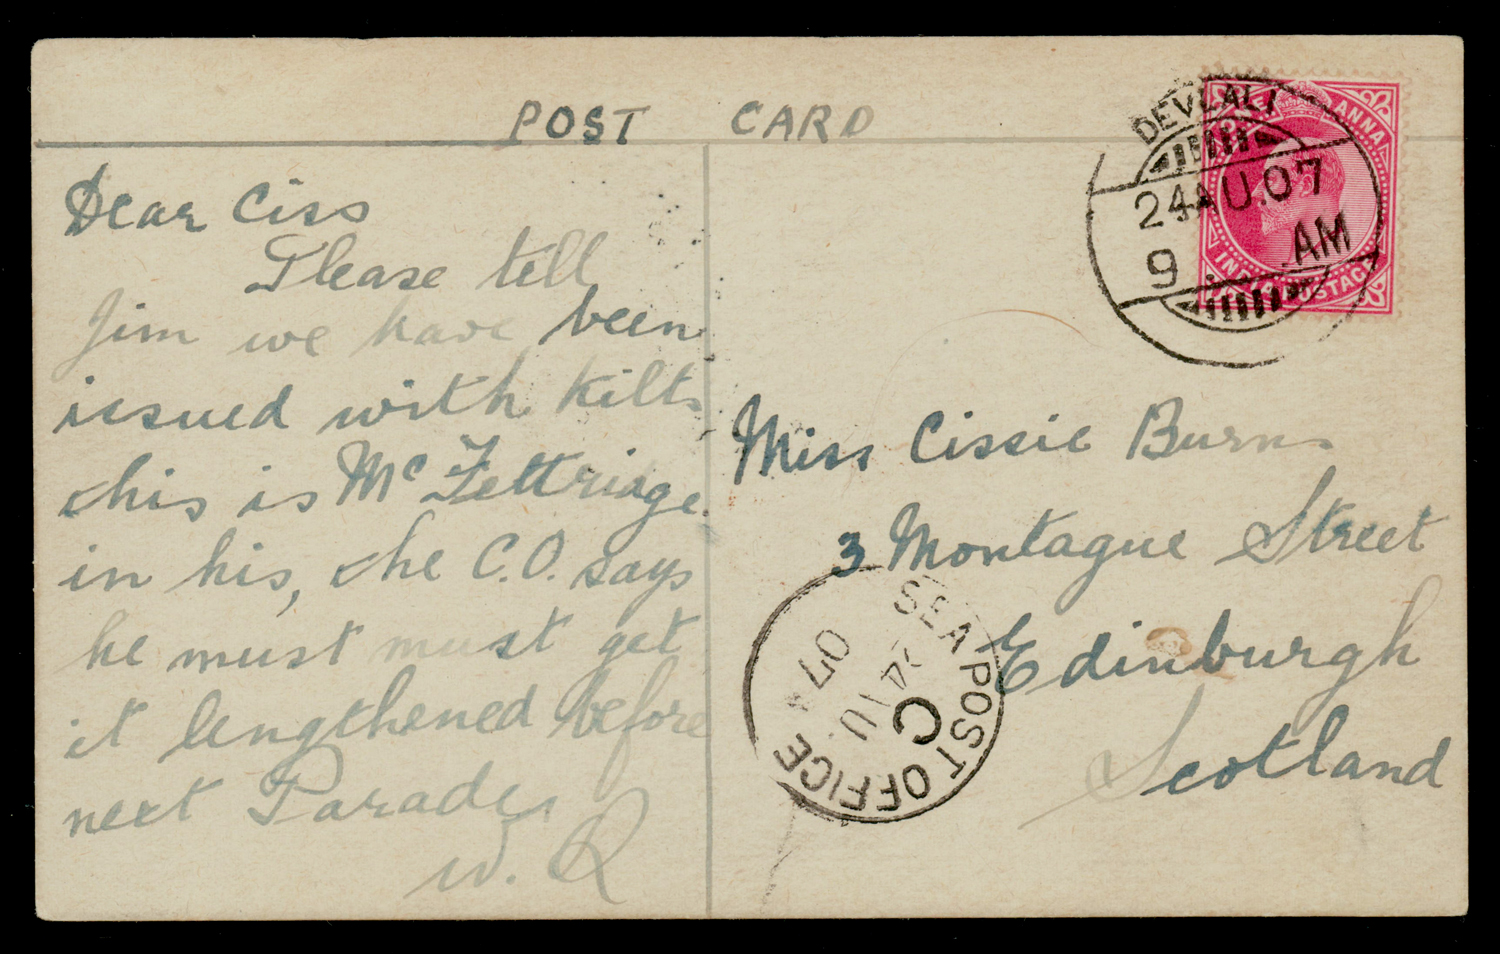 POST CARD
Dear Ciss
Please tell
Jim we have been
issued with kilts
this is McFettridge
in his, the C.O. says
he must must get
it lengthened before
next Parade,
W. R
DEVLALI
24 AU.07
9 AM
ONE ANNA
INDIA POSTAGE
Miss Cissie Burns
3 Montague Street
Edinburgh
Scotland
SEA POST OFFICE
C
24 AU
07